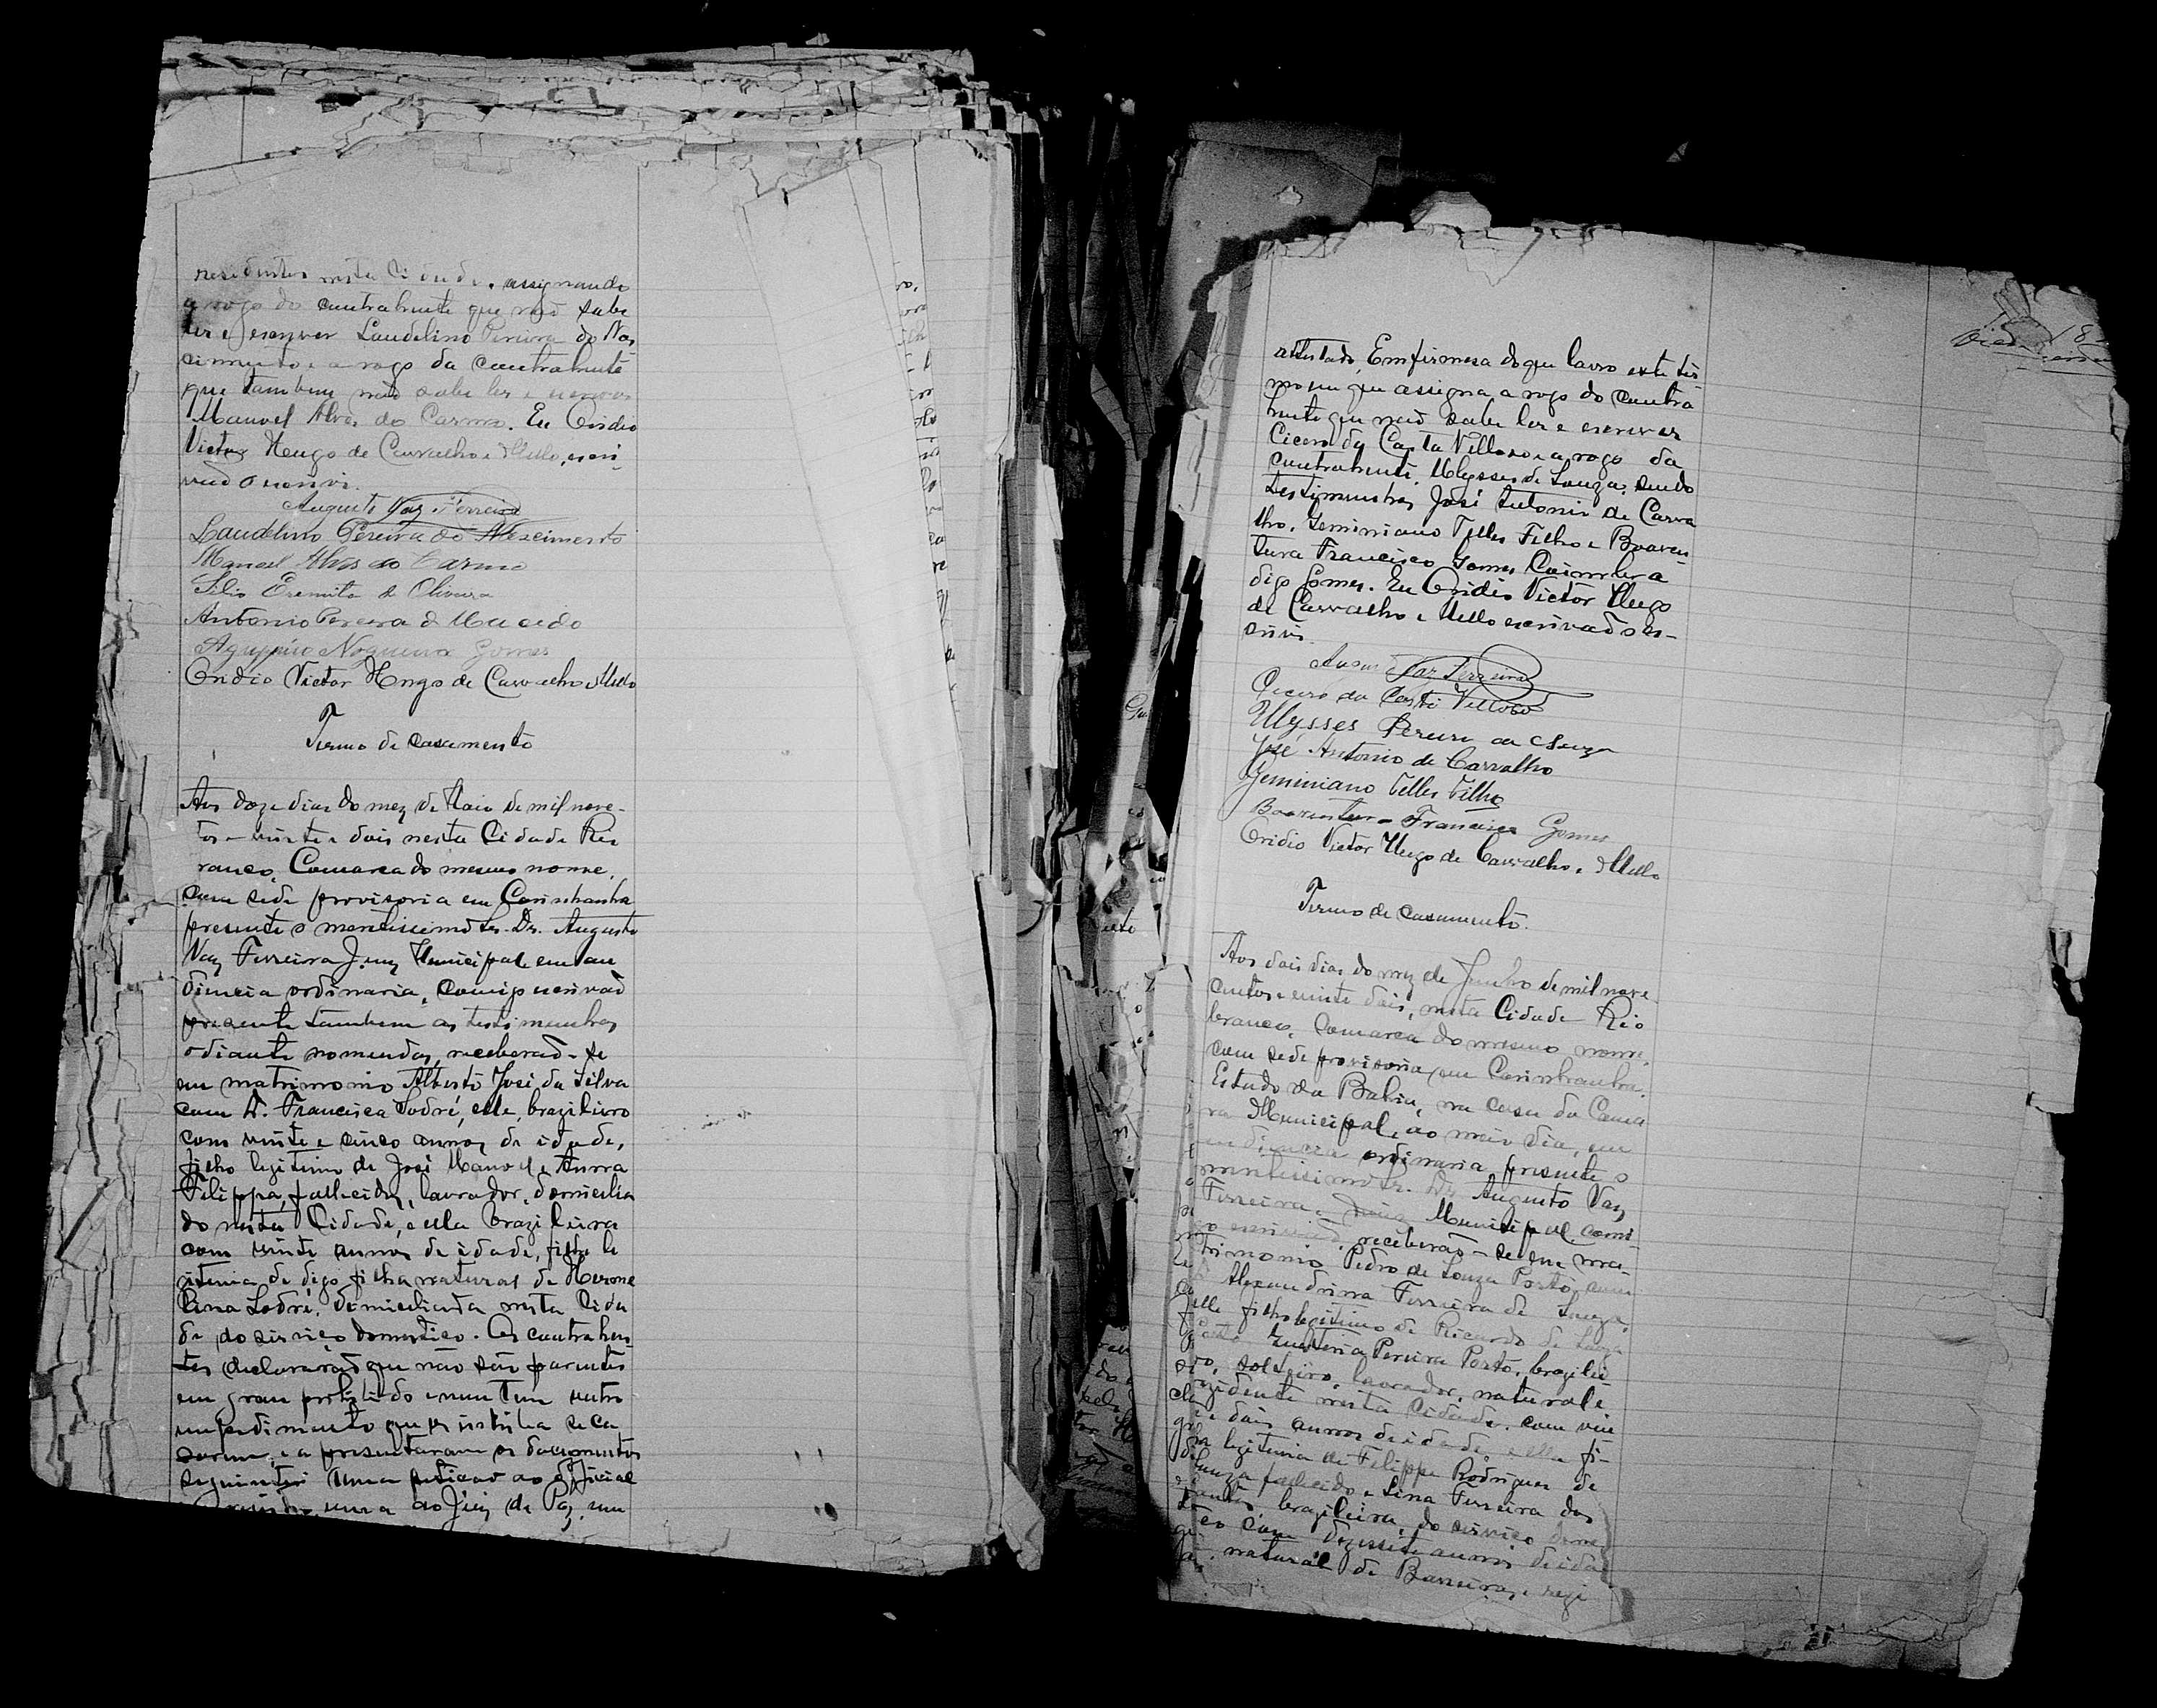 residentes nesta Cidade, assignando
a rogo do contrahente que não sabe
ler e escrever Laudelino Pereira do Nas
cimento e a rogo da contrahente
que tambem não sabe ler e escrever
Manoel Alves do Carmo. Eu Ovidio
Victor Hugo de Carvalho e Mello, escri-
vão o escrevi.
Augusto Vaz Ferreira
Laudelino Pereira do Nascimento
Manoel Alves do Carmo
Eremita de Oliveira
Antonio Pereira de Macedo
Agrippino Nogueira Gomes
Ovidio Victor Hugo de Carvalho e Mello
Termo de casamento
Aos doze dias do mez de Maio de mil nove-
tos e vinte e dois nesta Cidade Rio
ranco, Comarca do mesmo nome,
com sede provisoria em Carinhanha
presente o meritissimo Sr. Dr. Augusto
Vaz Ferreira Juiz Municipal em au
diencia ordinaria, comigo escrivão
presente tambem as testimunhas
adiante nomeadas, receberão-se
em matrimonio Alberto José da Silva
com D. Francisca Sodré, elle, brazileiro
com vinte e cinco annos de idade,
filho legitimo de José Manoel e Anna
Filippa, fallecidos, lavrador, domicilia
do nesta Cidade, e ella brazileira
com vinte annos de idade, filha le
gitima de digo filha natural de
Sodré, domiciliada nesta Cida
de, do serviço domestico. Os contrahen
tes declararão que não são parentes
em grau prohibido e nem tem outro
impedimento que os inhiba de ca
sarem, e apresentaram os documentos
seguintes: Uma petição ao official
uma ao Juiz de Paz, um
attestado. Em firmesa do que lavro este ter-
mo em que assigna, a rogo do contra
hente que não sabe ler e escrever
Cicero da Costa Velloso e a rogo da
contrahente, Ulysses de Souza, sendo
testimunhas José Antonio de Carva
lho, Geminiano Telles Filho e Boaven
tura Francisco Gomes Coimbra
digo Gomes. Eu Ovidio Victor Hugo
de Carvalho e Mello escrivão o es-
crevi.
Vaz Ferreira
Cicero da Costa Velloso
Ulysses Pereira de Souza
José Antonio de Carvalho
Geminiano Telles Filho
Boaventura Francisco Gomes
Ovidio Victor Hugo de Carvalho e Mello
Termo de casamento.
Aos dois dias do mez de Junho de mil nove
centos e vinte dois, nesta Cidade Rio
branco, Comarca do mesmo nome,
com sede provisoria em Carinhanha,
Estado da Bahia, na casa da Cama
ra Municipal, ao meio dia, em
audiencia ordinaria, presente o
meritissimo Sr. Dr. Augusto Vaz
Ferreira, Juiz Municipal, comi
go escrivão, receberão-se em ma-
trimonio Pedro de Souza Porto, com
Alexandrina Ferreira de Souza,
elle filho legitimo de Ricardo de Souza
Porto Pereira Porto, brazilei
ro, solteiro, lavrador, natural e
rezidente nesta Cidade, com vin
e dois annos de idade, e ella fi-
lha legitima de Filippe Rodrigues de
Souza fallecido e Lina Ferreira dos
brazileira, do serviço dome
co com dezessete annos de ida
natural de Barreiras, e rezi